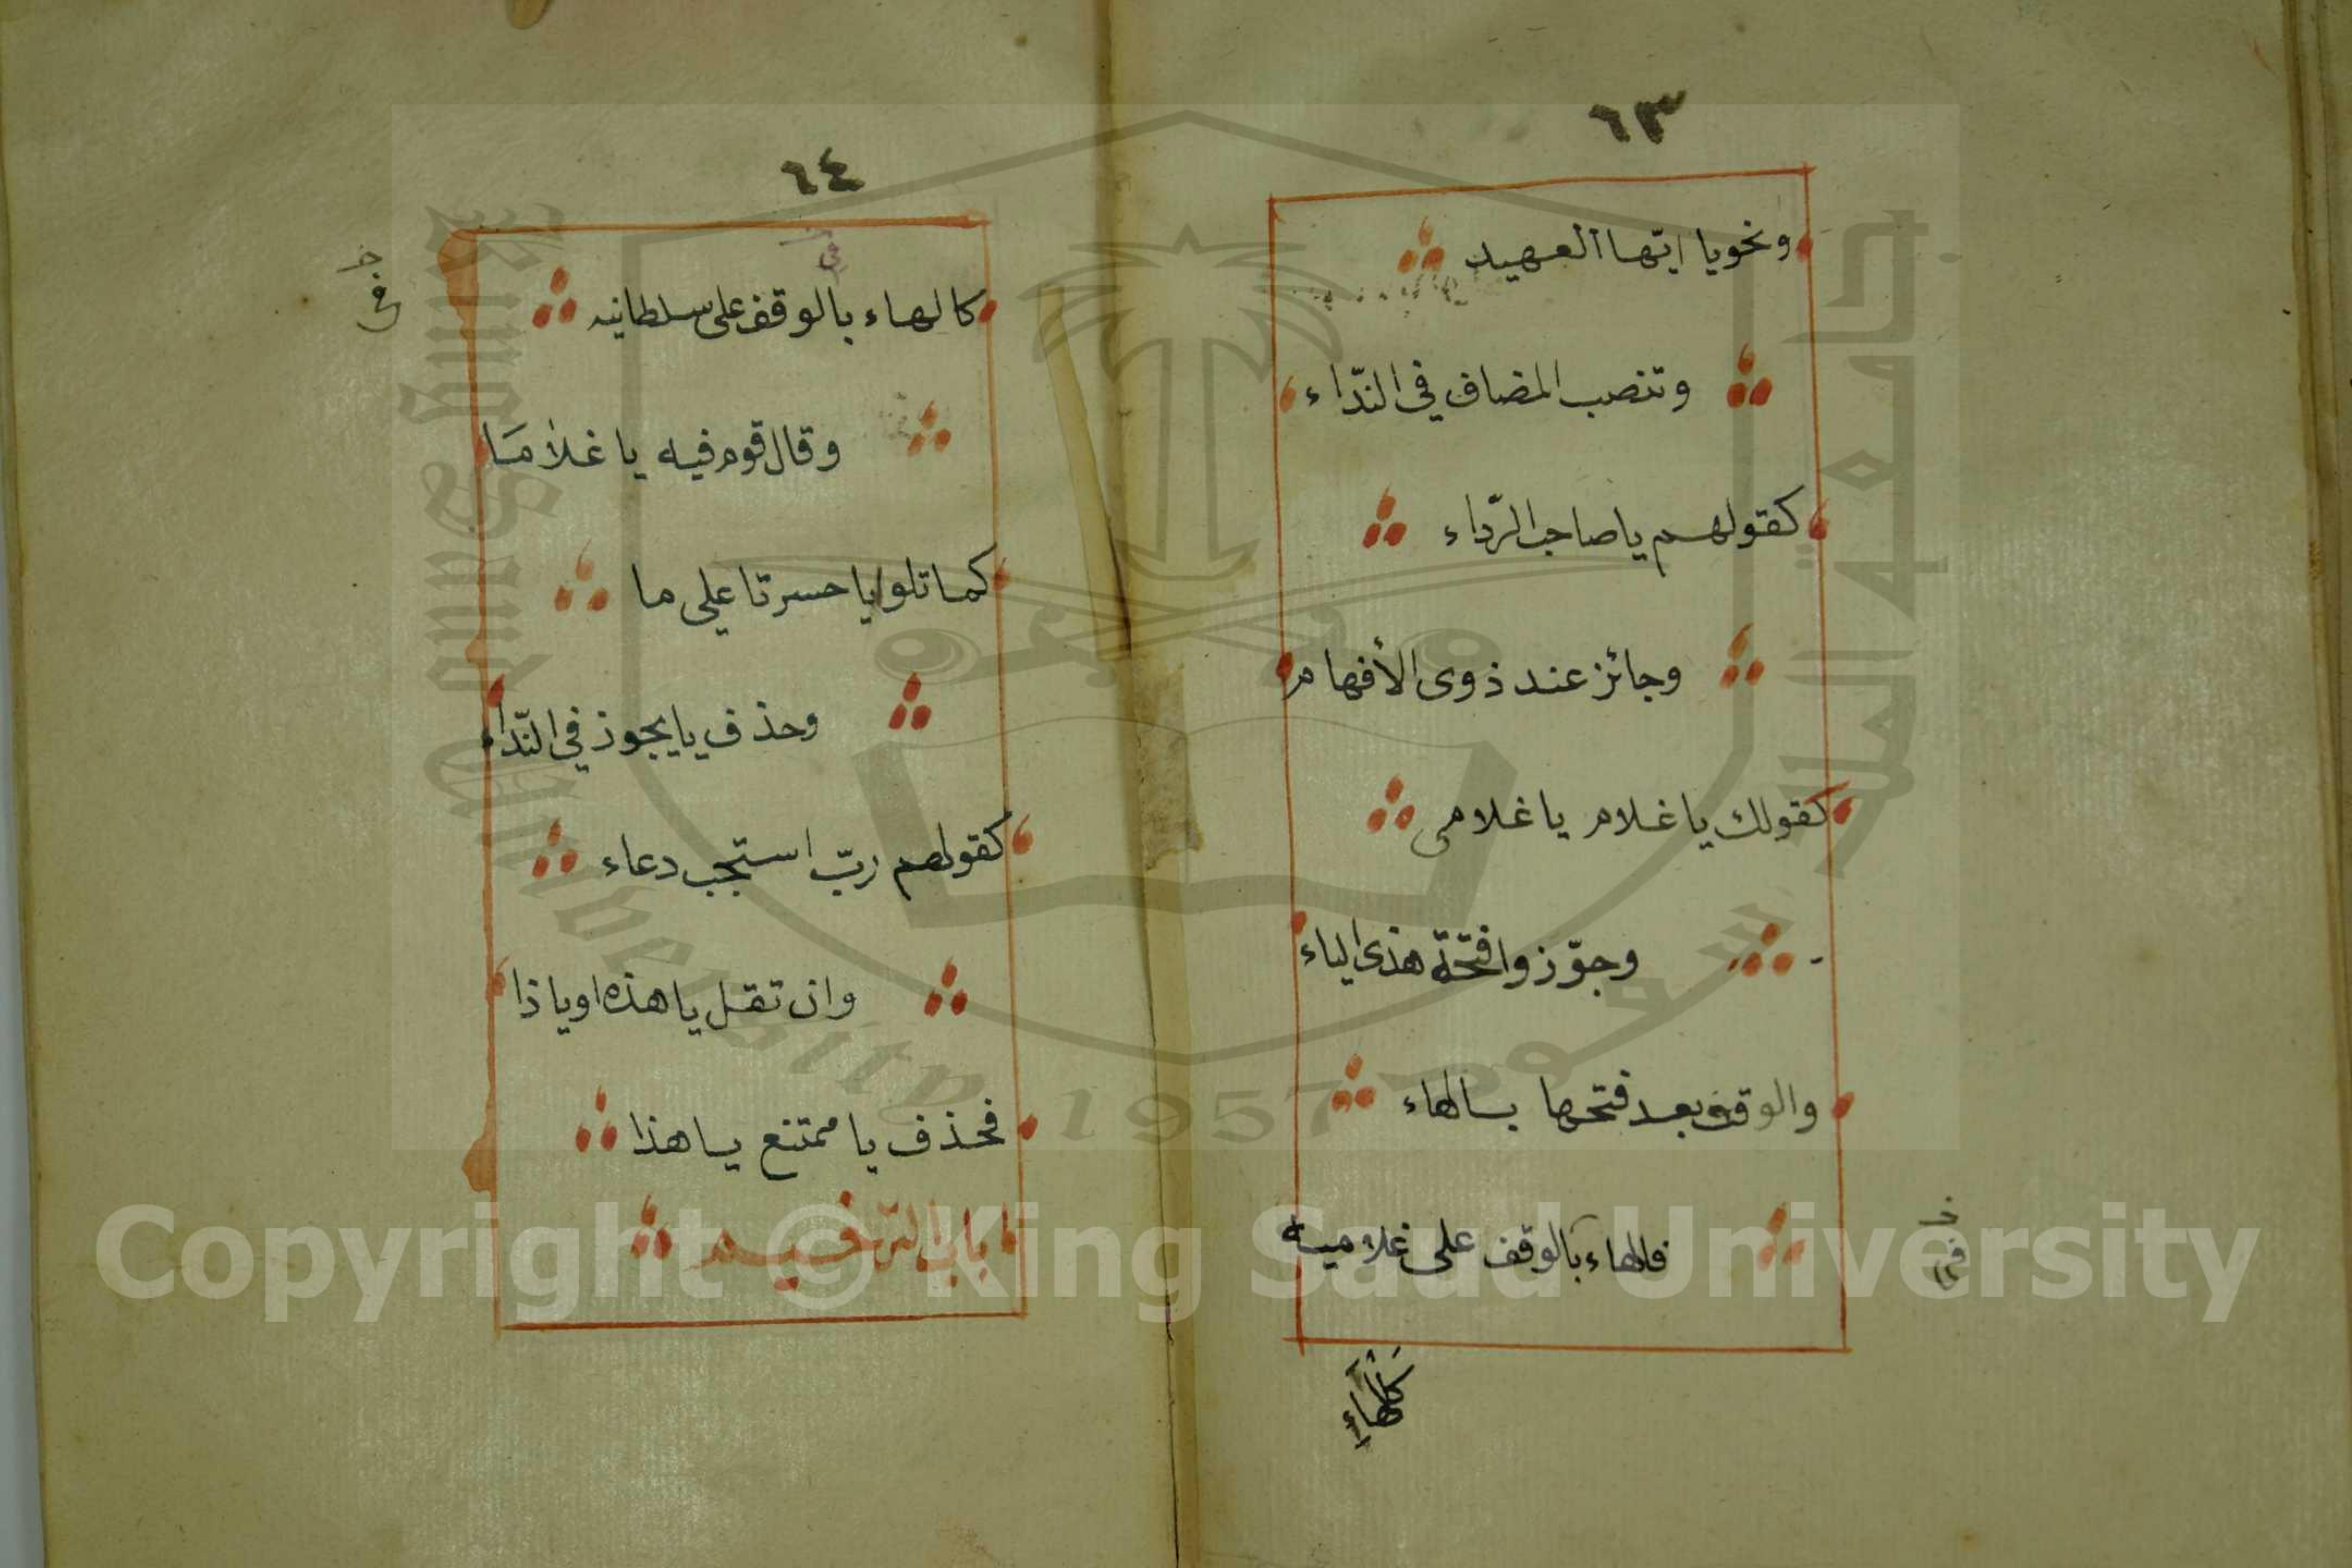 ٦٣
ونحو يا ايتها العهيد
وتنصب المضاف في النّداء
كقولهم يا صاحب الرّداء
وجائز عند ذوى الأفهام
كقولك يا غلام يا غلامى
وجوّزوا فتحة هذى الياء
والوقف بعد فتحها بالهاء
فالهاء بالوقف على غلاميه
كالهاء
٦٤
كالهاء بالوقف على سلطانيه
وقال قوم فيه يا غلامَا
كما تلوا يا حسرتا على ما
وحذف يا يجوز في النّداء
كقولهم ربّ استجب دعاء
وان تقل يا هذه او يا ذا
فحذف يا ممتنع يا هذا
باب الترخيم
جامعة الملك سعود
King Saud University
1957
Copyright © King Saud University